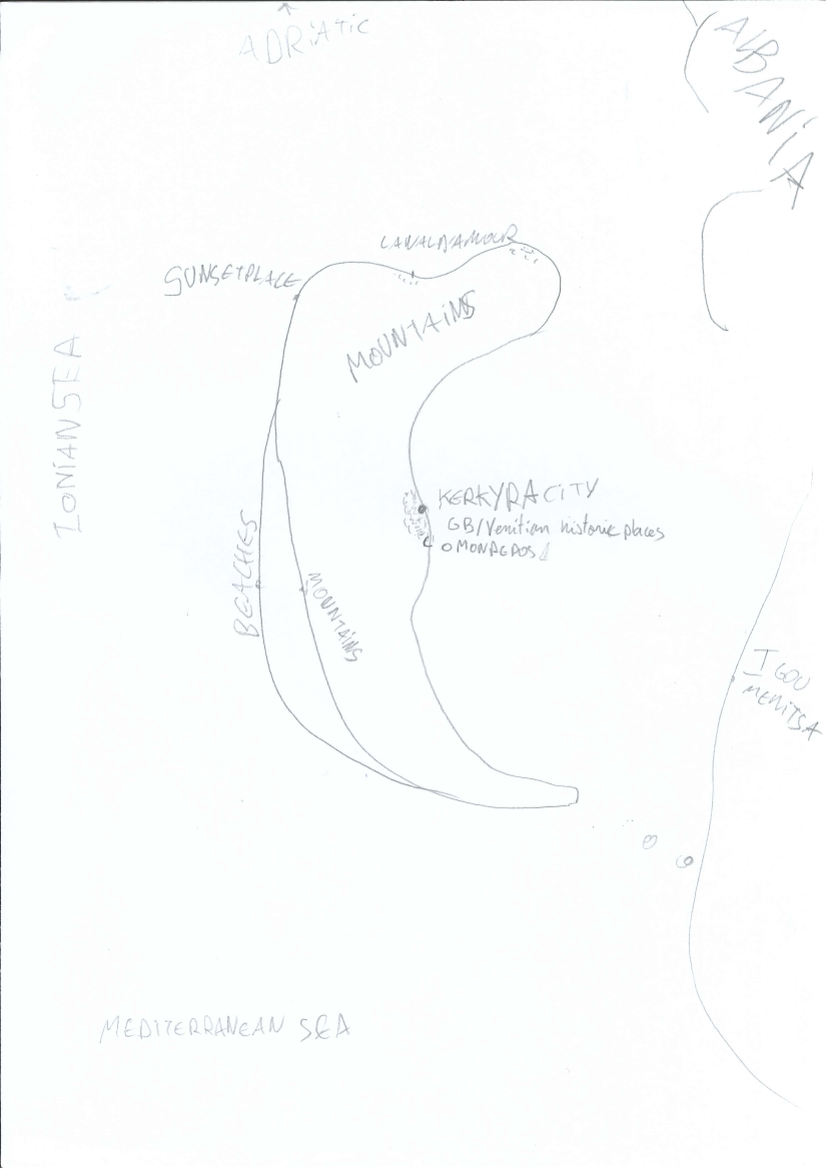 ADRiATic
ALBANiA
CANALD'AMOUR
SUNSETPLACE
MOUNTAiNS
IONiAN SEA
KERKYRA CiTY
GB/Venitian historic places
BEACHES
MOUNTAiNS
IGOU
MENiTSA
MEDITERRANEAN SEA